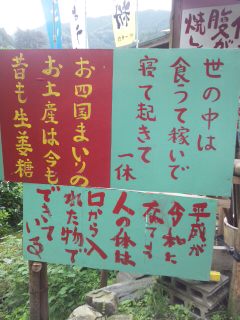 世の中は
食うて稼いで
寝て起きて
一休
お四国まいりの
お土産は今も
昔も生姜糖
平成が
令和に
なっても
人の体は
口から入
れた物で
できて
いる